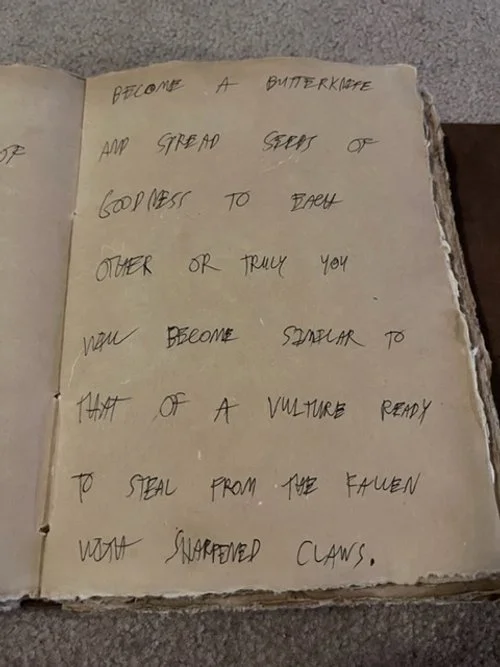 OF
BECOME A BUTTERKNIFE
AND SPREAD SEEDS OF
GOODNESS TO EACH
OTHER OR TRULY YOU
WILL BECOME SIMILAR TO
THAT OF A VULTURE READY
TO STEAL FROM THE FALLEN
WITH SHARPENED CLAWS.